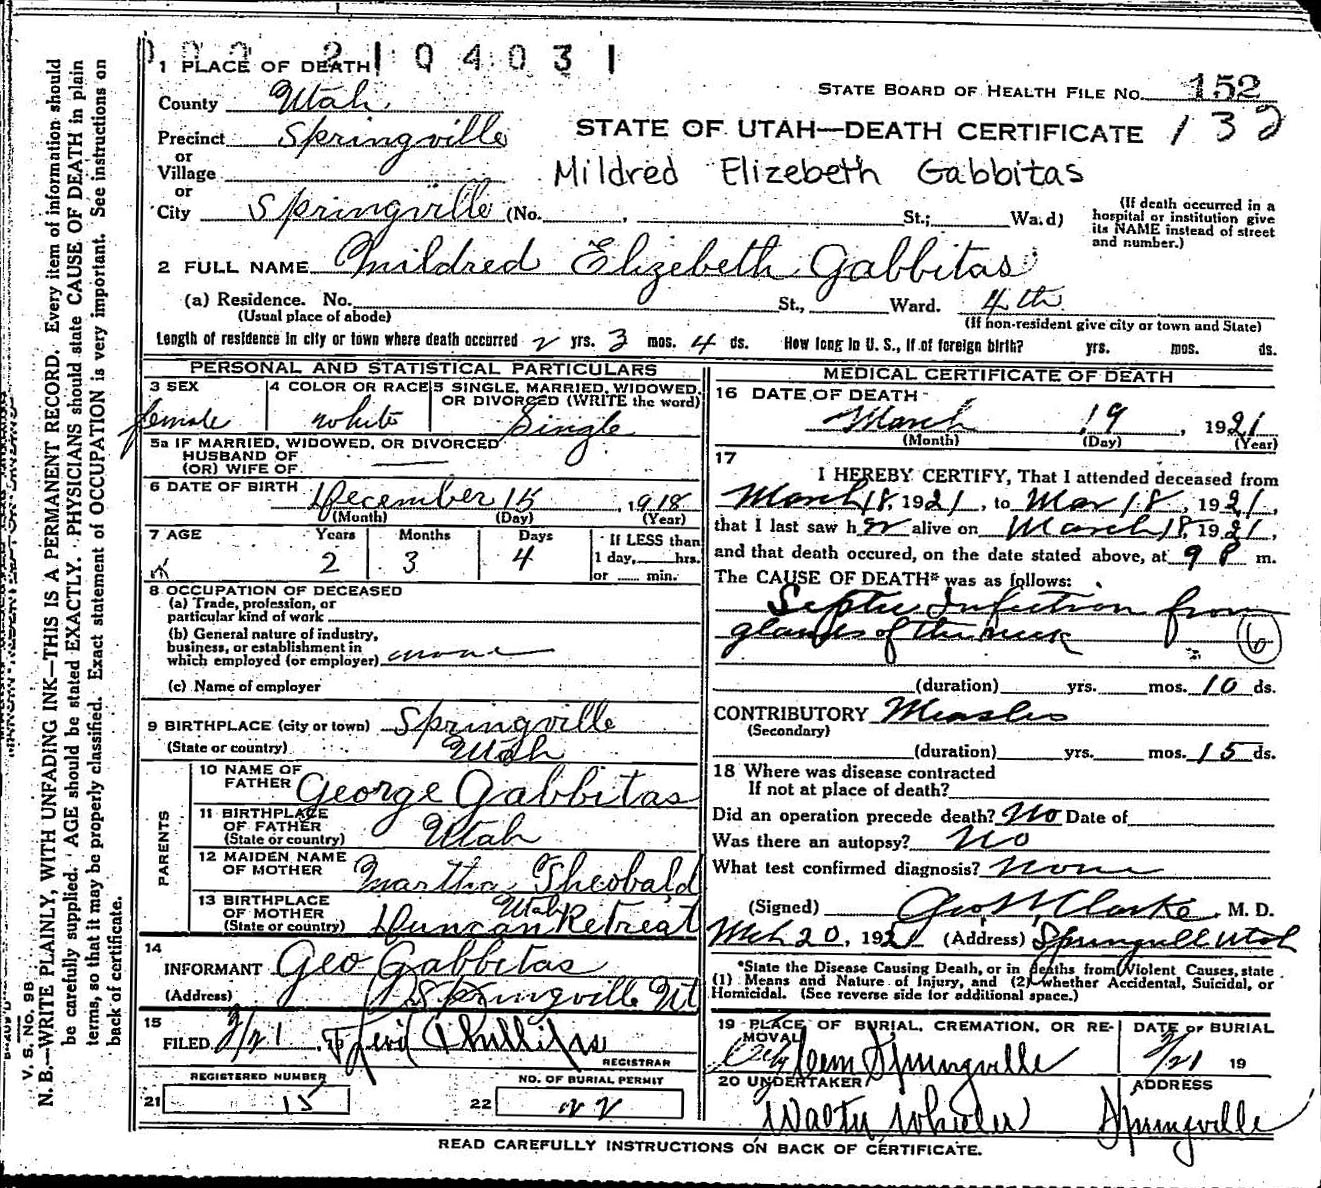 2104031
1 PLACE OF DEATH
STATE BOARD OF HEALTH FILE NO. 152
County Utah
132
STATE OF UTAH—DEATH CERTIFICATE
Precinct Springville
or
Village
Mildred Elizebeth Gabbitas
or
City Springville (No. , St.; Ward)
(If death occurred in a hospital or institution give its NAME instead of street and number.)
2 FULL NAME Mildred Elizebeth Gabbitas
(a) Residence. No. St., Ward. 4th
(Usual place of abode) (If non-resident give city or town and State)
Length of residence in city or town where death occurred 2 yrs. 3 mos. 4 ds. How long in U. S., if of foreign birth? yrs. mos. ds.
PERSONAL AND STATISTICAL PARTICULARS
3 SEX
female
4 COLOR OR RACE
white
5 SINGLE, MARRIED, WIDOWED, OR DIVORCED (WRITE the word)
Single
5a IF MARRIED, WIDOWED, OR DIVORCED
HUSBAND OF
(OR) WIFE OF
6 DATE OF BIRTH December 15, 1918
(Month) (Day) (Year)
7 AGE Years Months Days If LESS than
2 3 4 1 day, hrs.
or min.
8 OCCUPATION OF DECEASED
(a) Trade, profession, or
particular kind of work
(b) General nature of industry,
business, or establishment in
which employed (or employer) none
(c) Name of employer
9 BIRTHPLACE (city or town) Springville
(State or country) Utah
PARENTS
10 NAME OF FATHER George Gabbitas
11 BIRTHPLACE OF FATHER (State or country) Utah
12 MAIDEN NAME OF MOTHER Martha Theobald
13 BIRTHPLACE OF MOTHER (State or country) Duncan Retreat Utah
14
INFORMANT Geo Gabbitas
(Address) Springville Ut
15
FILED 3/21 Phillips
REGISTRAR
REGISTERED NUMBER
21 15
NO. OF BURIAL PERMIT
22 22
MEDICAL CERTIFICATE OF DEATH
16 DATE OF DEATH
March 19, 1921
(Month) (Day) (Year)
17
I HEREBY CERTIFY, That I attended deceased from
March 18, 1921, to Mar 18, 1921,
that I last saw her alive on March 18, 1921,
and that death occured, on the date stated above, at 9 P m.
The CAUSE OF DEATH* was as follows:
Septic Infection from
glands of the neck
6
(duration) yrs. mos. 10 ds.
CONTRIBUTORY Measles
(Secondary)
(duration) yrs. mos. 15 ds.
18 Where was disease contracted
If not at place of death?
Did an operation precede death? No Date of
Was there an autopsy? No
What test confirmed diagnosis? None
(Signed) Geo Clarke, M. D.
Mch 20, 1921 (Address) Springville Utah
*State the Disease Causing Death, or in deaths from Violent Causes, state
(1) Means and Nature of Injury, and (2) whether Accidental, Suicidal, or
Homicidal. (See reverse side for additional space.)
19 PLACE OF BURIAL, CREMATION, OR REMOVAL
City Cem Springville
DATE OF BURIAL
3/21 19
20 UNDERTAKER
Walter Wheeler
ADDRESS
Springville
READ CAREFULLY INSTRUCTIONS ON BACK OF CERTIFICATE.
V. S. No. 9B
N. B.—WRITE PLAINLY, WITH UNFADING INK—THIS IS A PERMANENT RECORD. Every item of information should
be carefully supplied. AGE should be stated EXACTLY. PHYSICIANS should state CAUSE OF DEATH in plain
terms, so that it may be properly classified. Exact statement of OCCUPATION is very important. See instructions on
back of certificate.